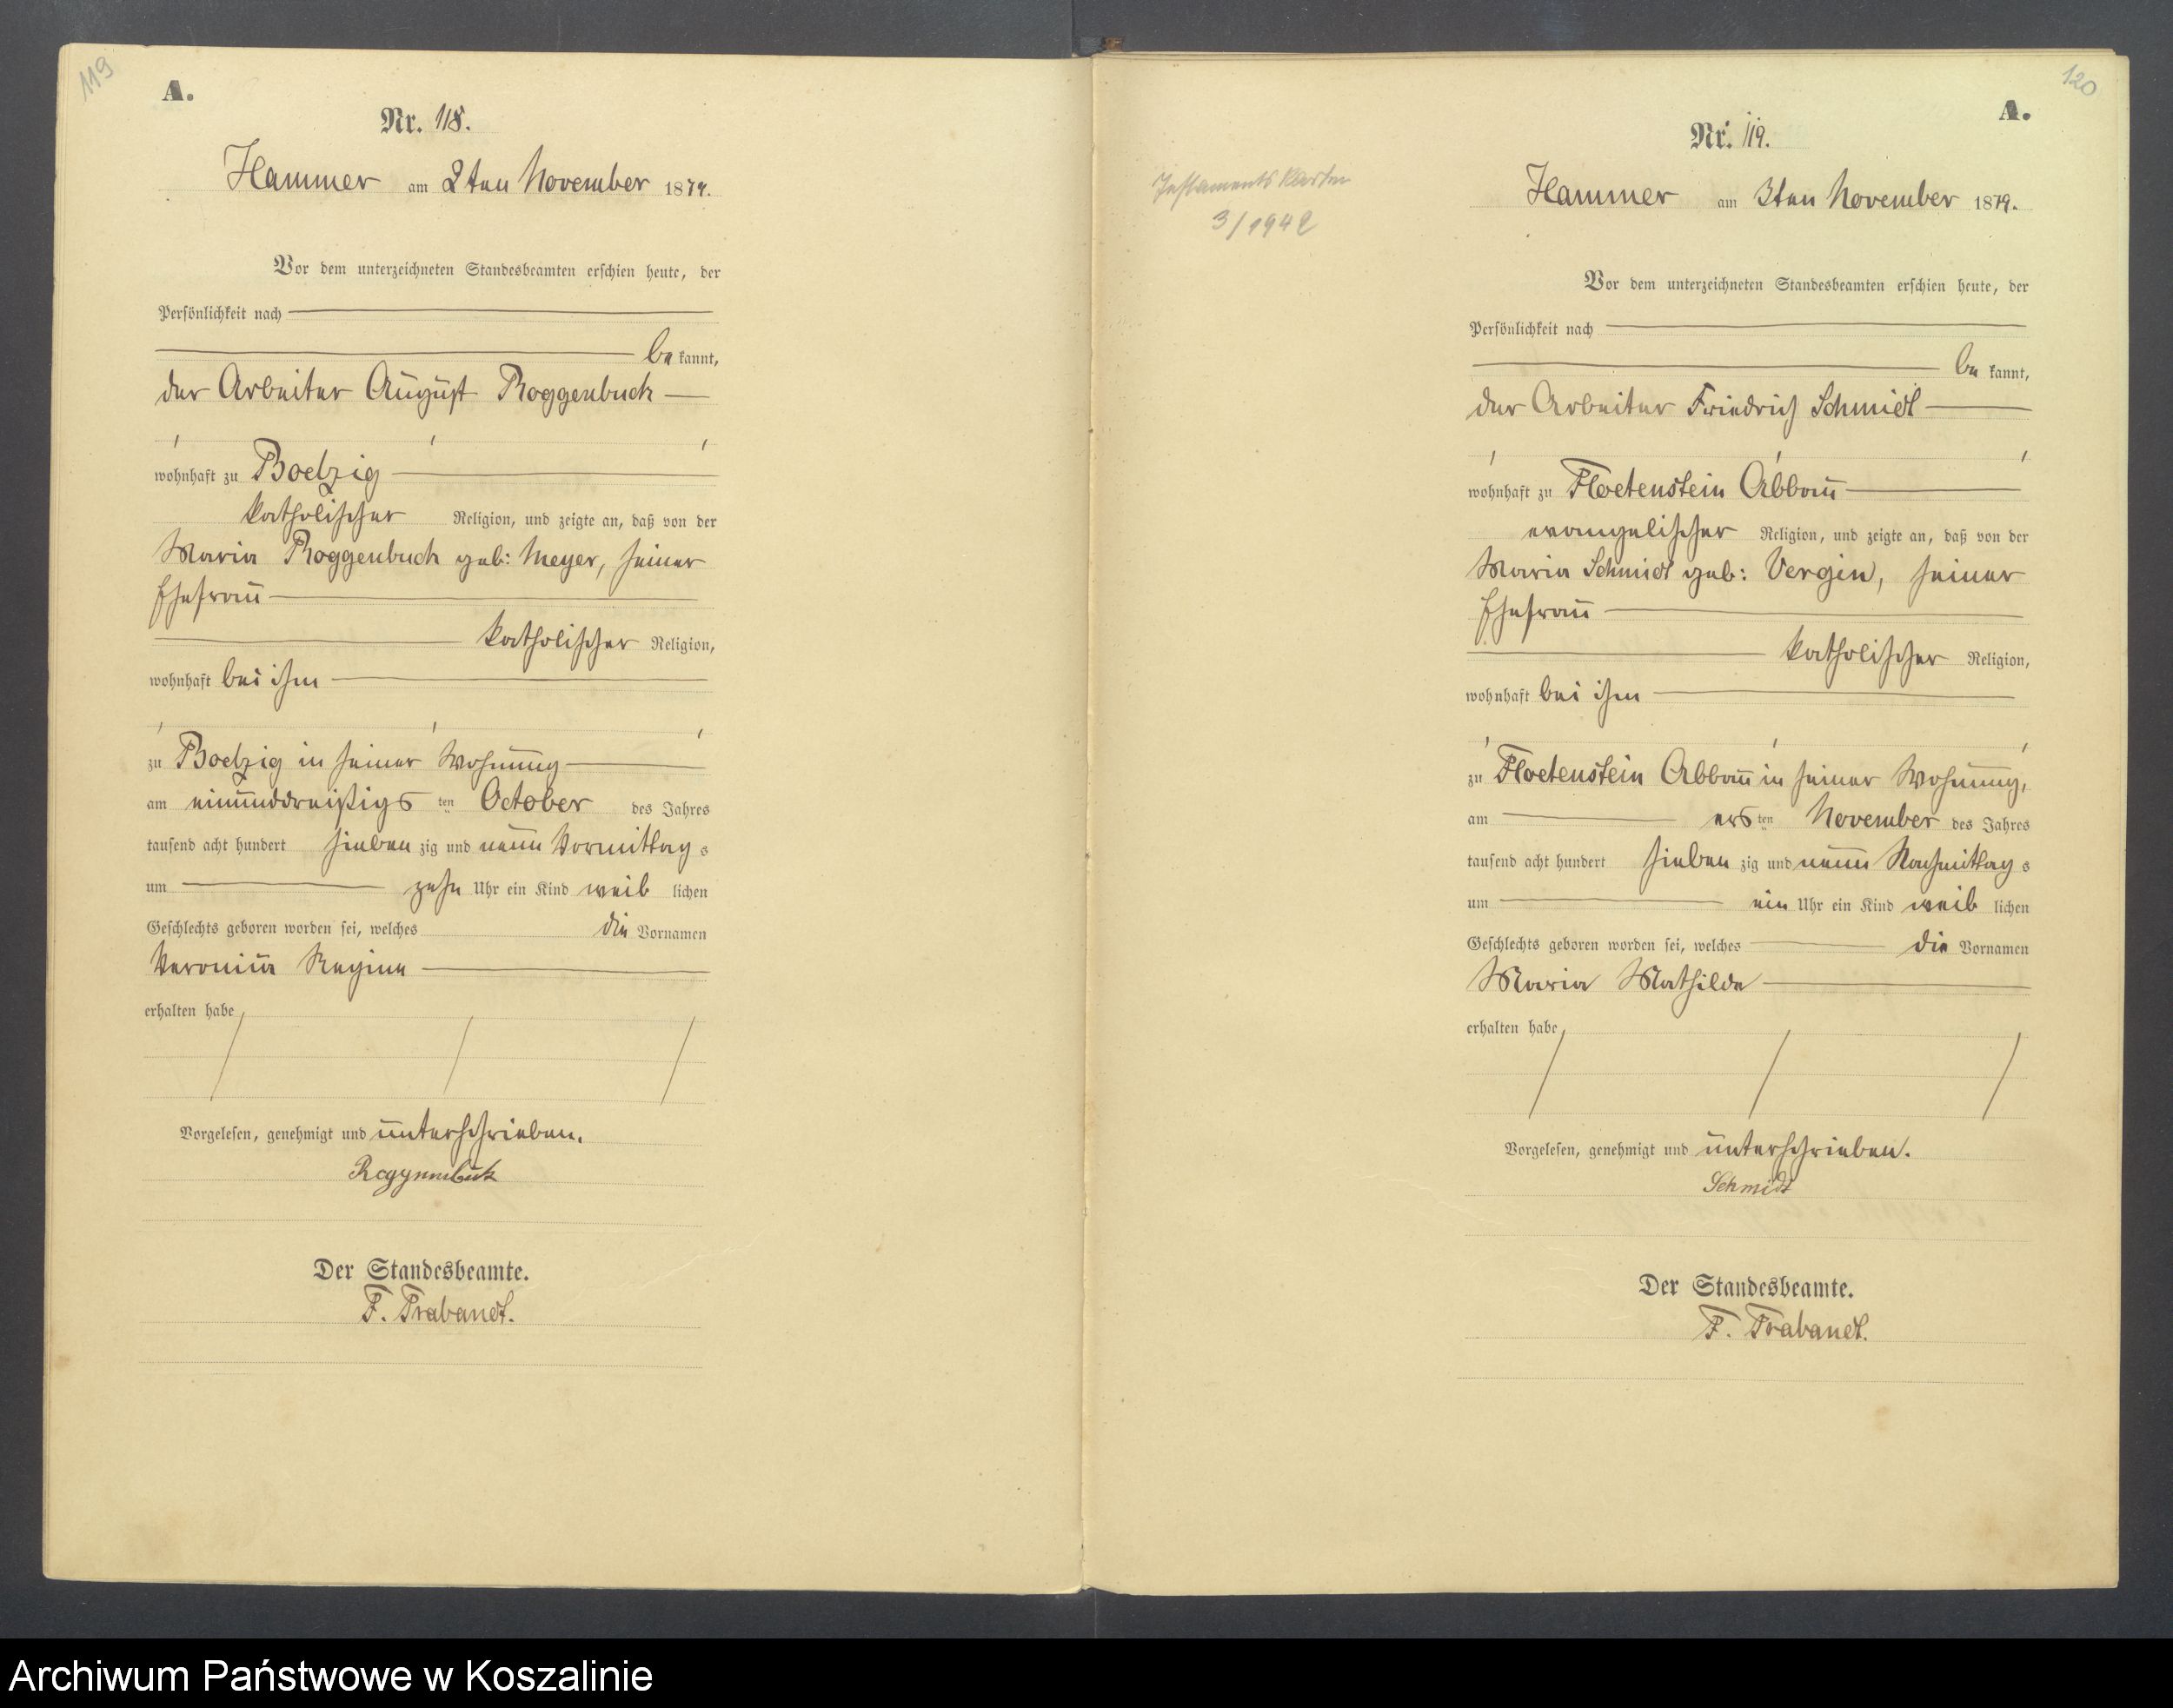 119
A.
Nr. 118.
Hammer am 2ten November 1879.
Vor dem unterzeichneten Standesbeamten erschien heute, der
Persönlichkeit nach
be kannt,
der Arbeiter August Roggenbuck
wohnhaft zu Boelzig
katholischer Religion, und zeigte an, daß von der
Maria Roggenbuck geb: Meyer, seiner
Ehefrau
katholischer Religion,
wohnhaft bei ihm
zu Boelzig in seiner Wohnung
am einunddreißigs ten October des Jahres
tausend acht hundert sieben zig und neun Vormittag s
um zehn Uhr ein Kind weib lichen
Geschlechts geboren worden sei, welches die Vornamen
Veronica Regina
erhalten habe
Vorgelesen, genehmigt und unterschrieben.
Der Standesbeamte.
F. Trabandt.
120
A.
Nr. 119.
Testaments Karten
3/1942
Hammer am 3ten November 1879.
Vor dem unterzeichneten Standesbeamten erschien heute, der
Persönlichkeit nach
be kannt,
der Arbeiter Friedrich Schmidt
wohnhaft zu Floetenstein Abbau
evangelischer Religion, und zeigte an, daß von der
Maria Schmidt geb: Vergin, seiner
Ehefrau
katholischer Religion,
wohnhaft bei ihm
zu Floetenstein Abbau in seiner Wohnung,
am ers ten November des Jahres
tausend acht hundert sieben zig und neun Nachmittag s
um ein Uhr ein Kind weib lichen
Geschlechts geboren worden sei, welches die Vornamen
Maria Mathilde
erhalten habe
Vorgelesen, genehmigt und unterschrieben.
Schmidt
Der Standesbeamte.
F. Trabandt.
Archiwum Państwowe w Koszalinie